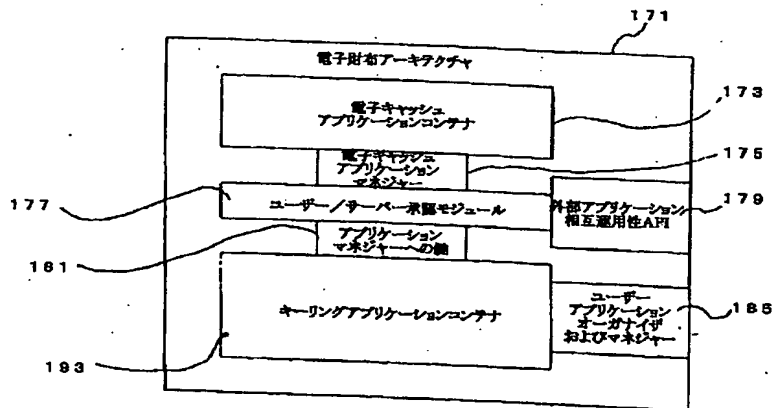 171
電子財布アーキテクチャ
電子キャッシュ
アプリケーションコンテナ
173
電子キャッシュ
アプリケーション
マネジャー
175
177
ユーザー/サーバー承認モジュール
外部アプリケーション/
相互運用性API
179
181
アプリケーション
マネジャーへの鍵
キーリングアプリケーションコンテナ
193
ユーザー
アプリケーション
オーガナイザ
およびマネジャー
185